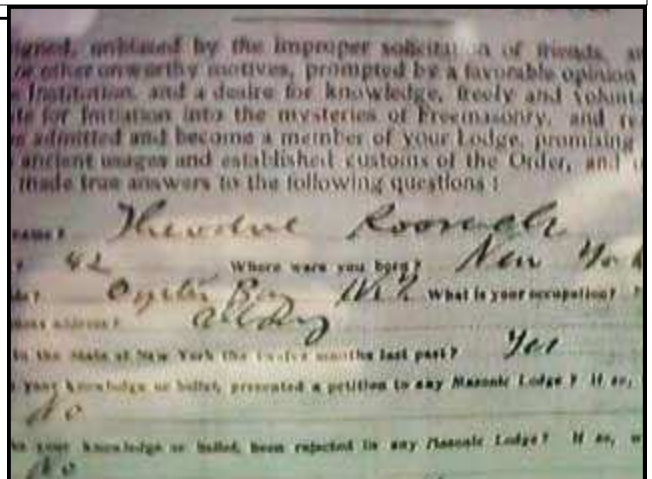 igned, unbiased by the improper solicitation of friends, a
or other unworthy motives, prompted by a favorable opinion
Institution, and a desire for knowledge, freely and volunta
te for Initiation into the mysteries of Freemasonry, and re
admitted and become a member of your Lodge, promising
ancient usages and established customs of the Order, and
made true answers to the following questions :
name? Theodore Roosevelt
42 Where were you born? New York
Oyster Bay N.Y. What is your occupation?
address? Albany
in the State of New York the twelve months last past? Yes
your knowledge or belief, presented a petition to any Masonic Lodge ? If so,
No
your knowledge or belief, been rejected in any Masonic Lodge? If so, w
No